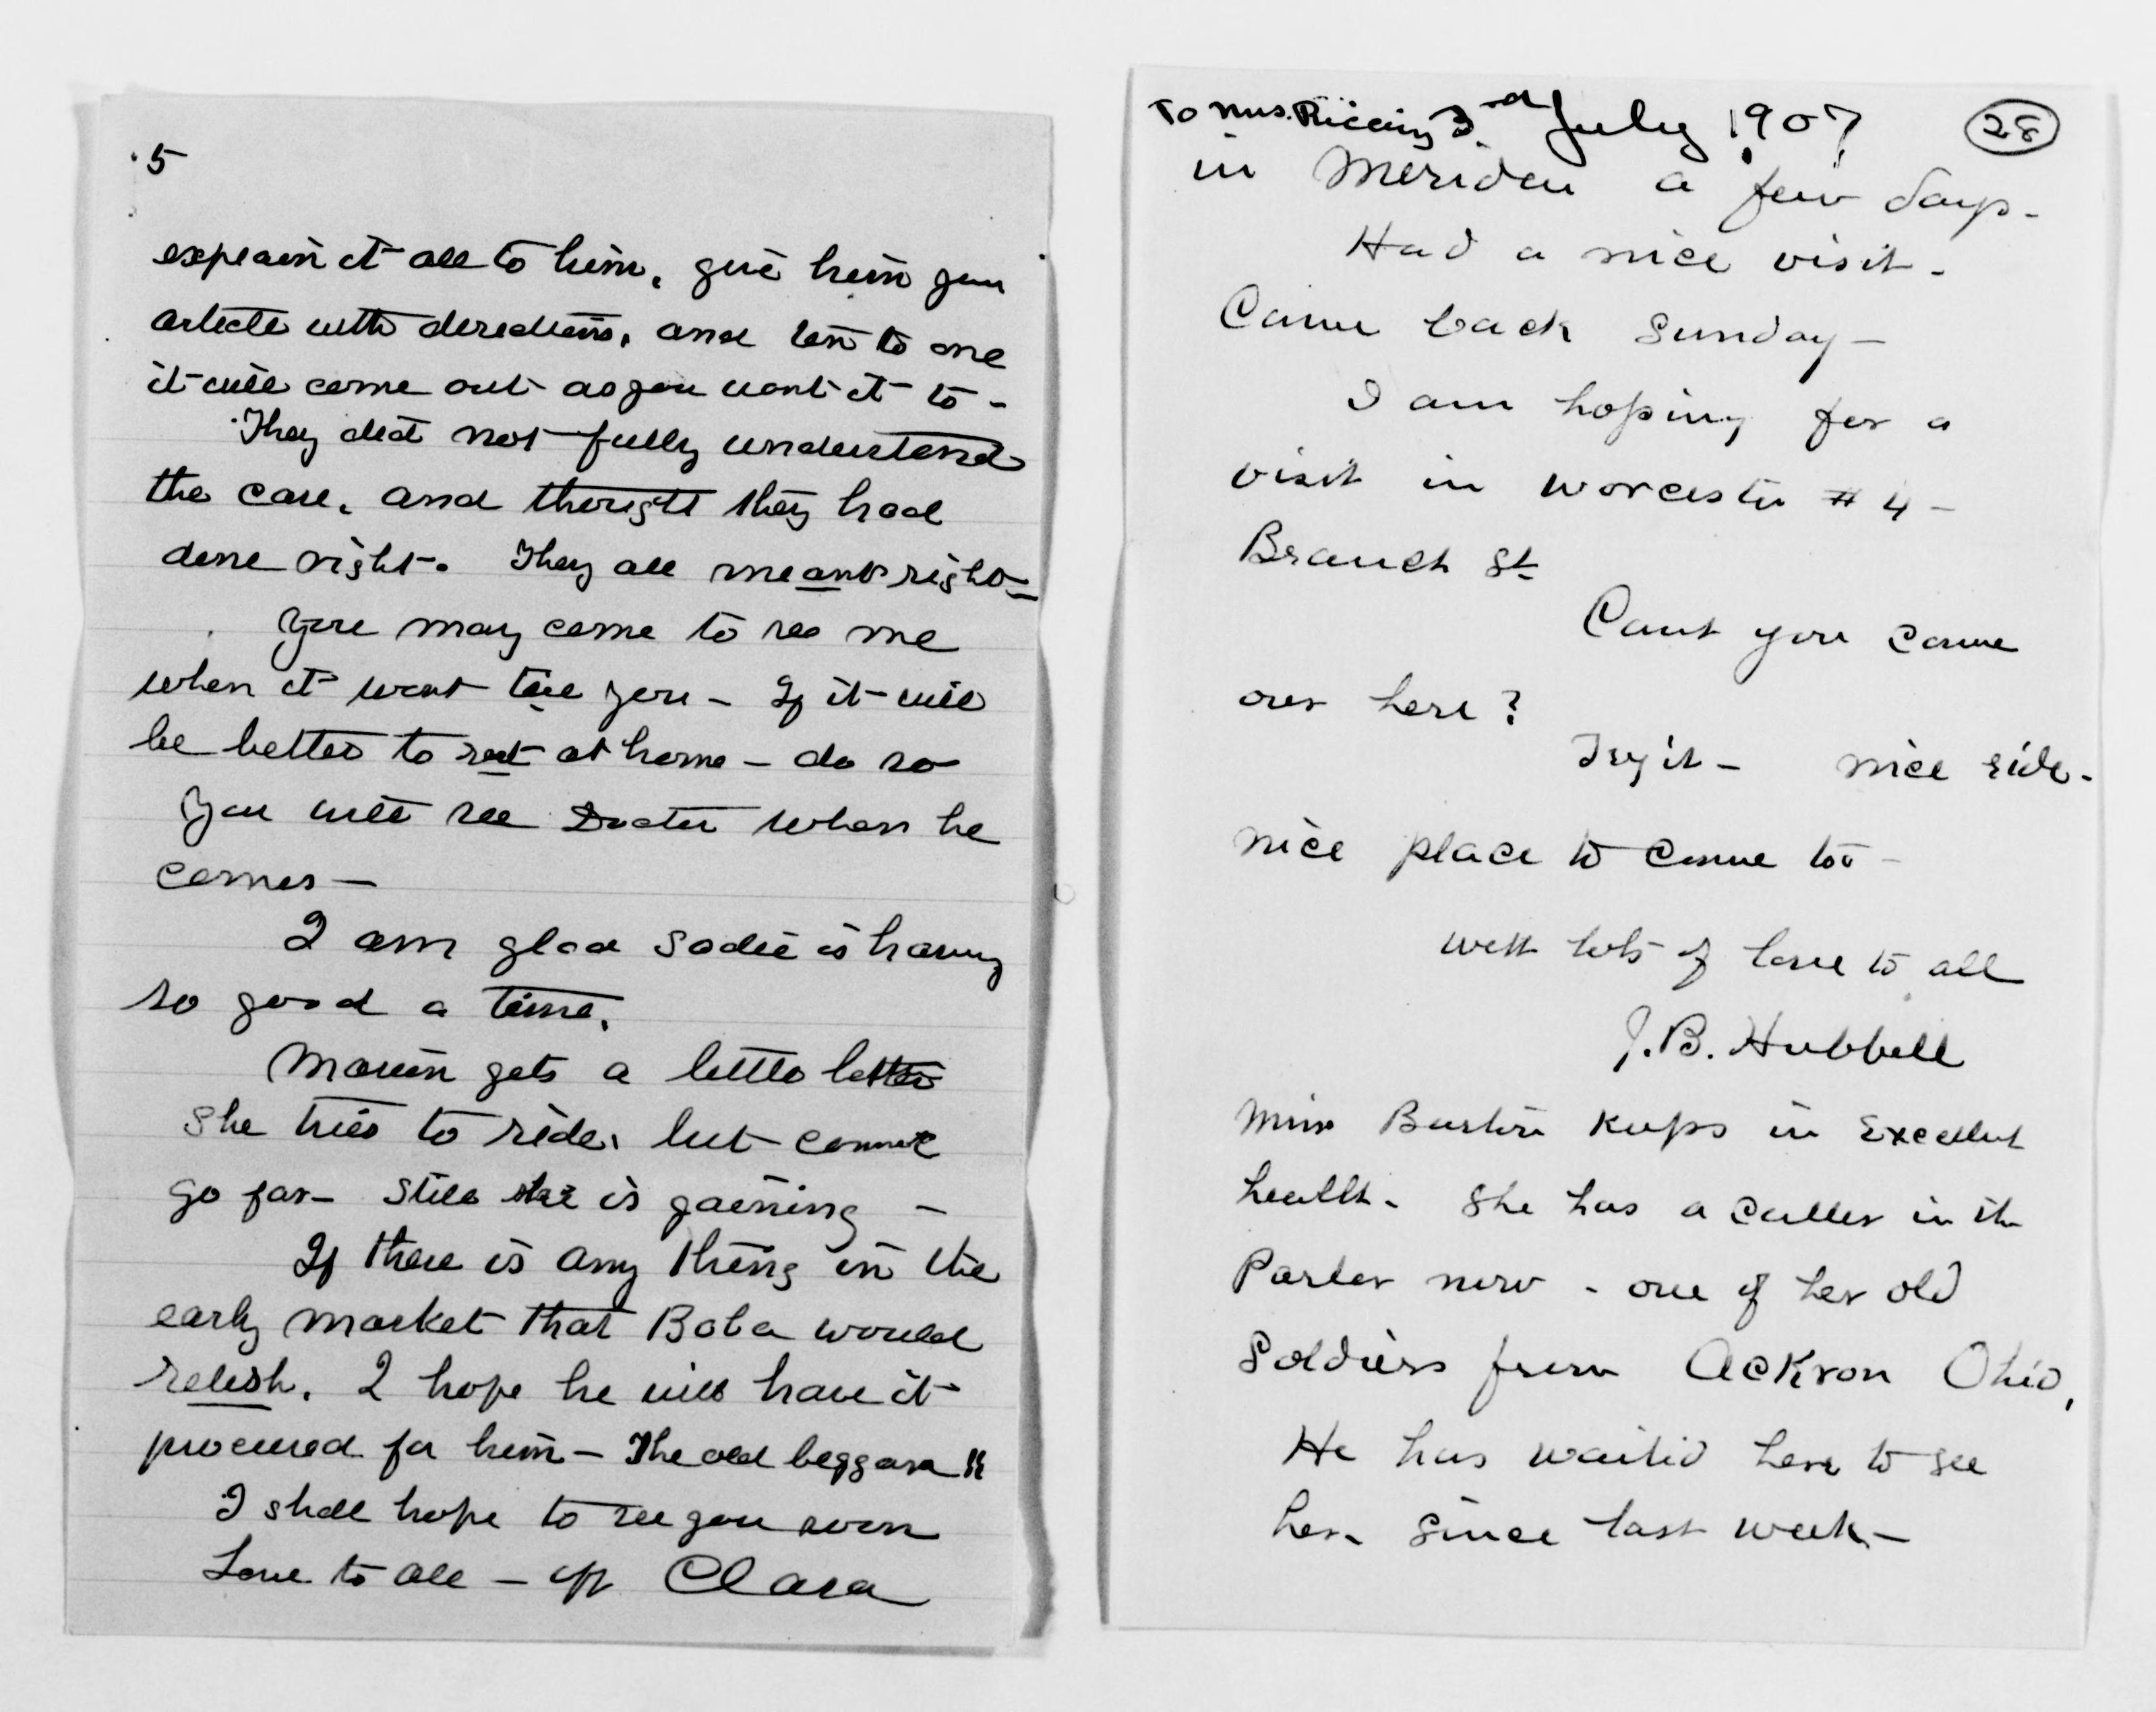 5
explain it all to him, give him your
article with directions, and ten to one
it will come out as you want it to -
They did not fully understand
the case, and thought they had
done right. They all meant right -
You may come to see me
when it wont tire you - If it will
be better to rest at home - do so
You will see Doctor when he
comes -
I am glad Sadie is having
so good a time.
gets a little better
She tries to ride, but cannot
go far - Still she is gaining -
If there is any thing in the
early market that Baba would
relish, I hope he will have it
procured for him - The old beggar!!
I shall hope to see you soon
Love to all - Clara
To Mrs. Riccius 3rd July 1907 28
in Meriden a few days -
Had a nice visit -
Came back Sunday -
I am hoping for a
visit in Worcester # 4 -
Branch St
Cant you come
over here?
Try it - nice ride -
nice place to come too -
Well lots of love to all
J. B. Hubbell
Miss Barton keeps in Excellent
health - She has a caller in the
Parlor now - one of her old
Soldiers from Ackron Ohio,
He has waited here to see
her since last week -